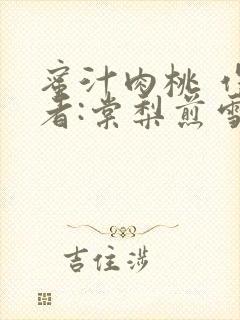 蜜汁肉桃
者:棠梨煎雪
吉住涉